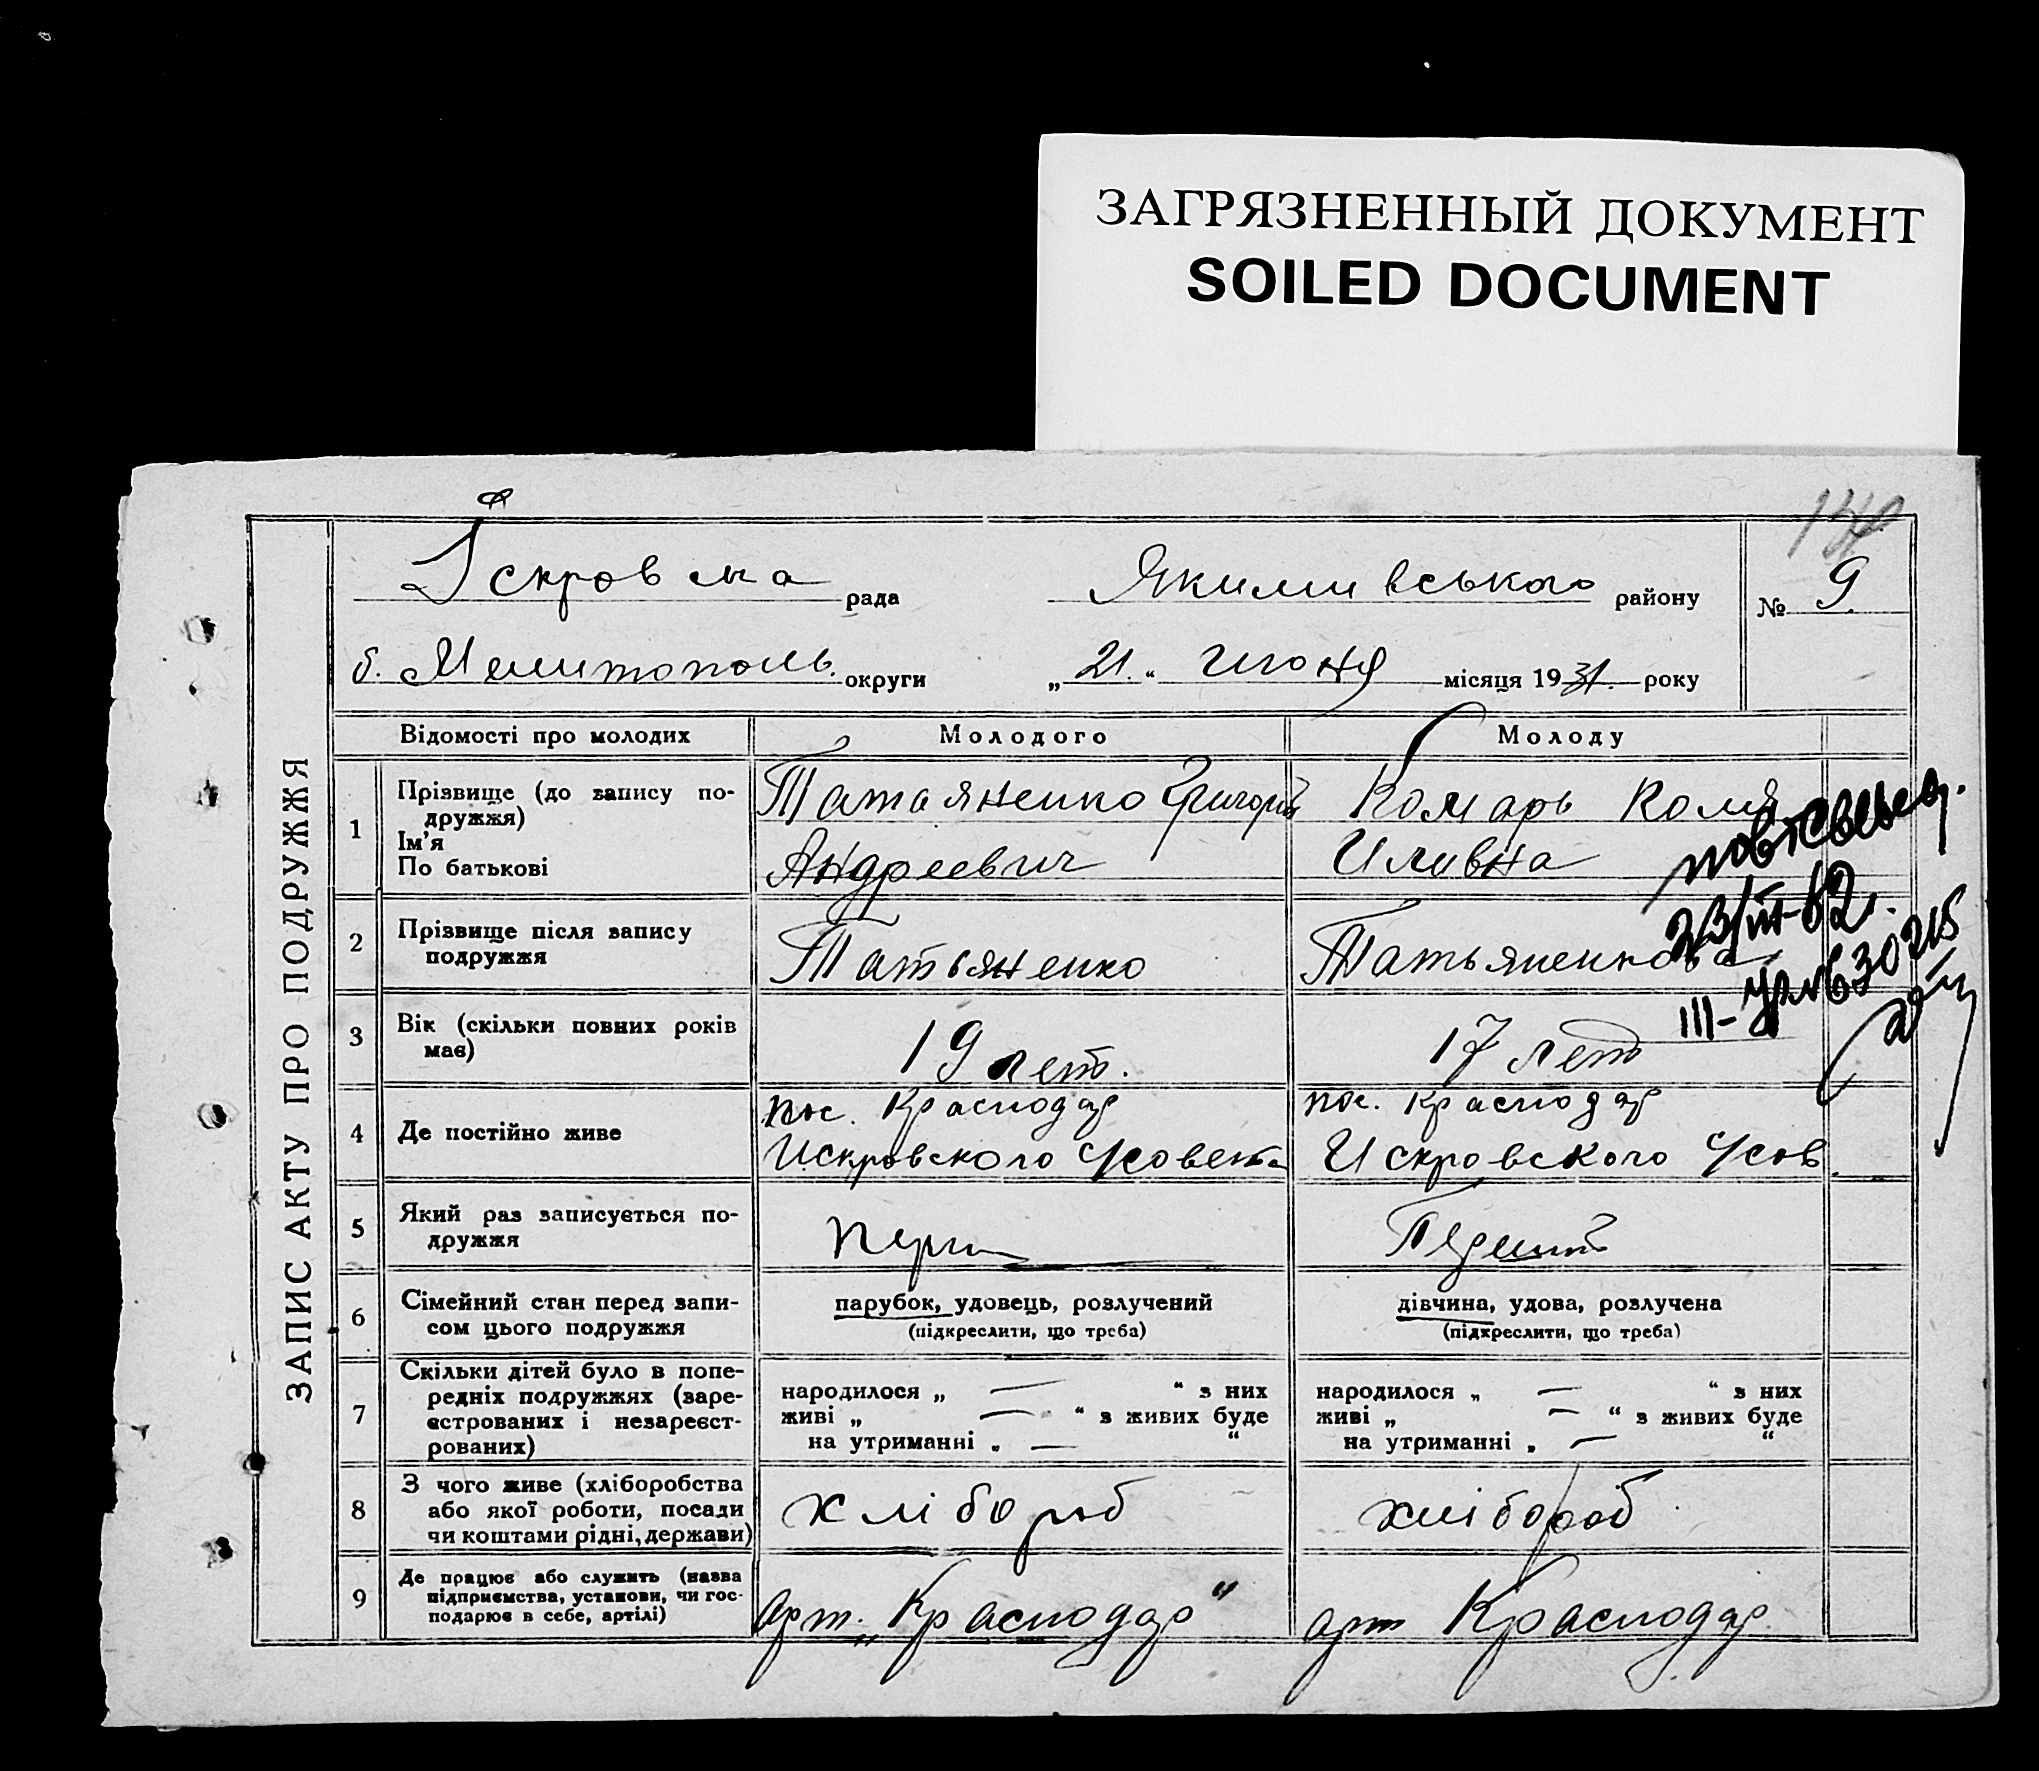 ЗАГРЯЗНЕННЫЙ ДОКУМЕНТ
SOILED DOCUMENT
ЗАПИС АКТУ ПРО ПОДРУЖЖЯ
Іскровська рада Якимивського району № 9.
б. Мелитополь. округи „21.“ Июня місяця 1931. року
Відомості про молодих Молодого Молоду
1 Прізвище (до запису по-
дружжя)
Ім'я
По батькові
Татаяненко Григорій
Андреевич
Комарь
2 Прізвище після запису
подружжя
Татьяненко
Татьяненкова
3 Вік (скільки повних років
має)
19 лет.
17 лет
4 Де постійно живе
пос. Краснодар
Искровского
пос. Краснодар
Искровского
23/III-62.
5 Який раз записується по-
дружжя
перш
6 Сімейний стан перед запи-
сом цього подружжя
парубок, удовець, розлучений
(підкреслити, що треба)
дівчина, удова, розлучена
(підкреслити, що треба)
7 Скільки дітей було в попе-
редніх подружжях (заре-
єстрованих і незареєст-
рованих)
народилося „ — “ з них
живі „ — “ з живих буде
на утриманні „ — “
народилося „ — “ з них
живі „ — “ з живих буде
на утриманні „ — “
8 З чого живе (хліборобства
або якої роботи, посади
чи коштами рідні, держави)
хлібороб
хлібороб
9 Де працює або служить (назва
підприємства, установи, чи гос-
подарює в себе, артілі)
арт. „Краснодар“
арт Краснодар